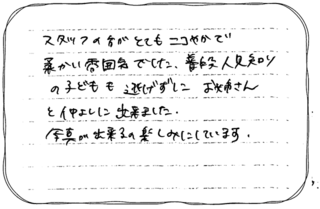 スタッフの方がとてもニコやかで
柔かい雰囲気でした。普段人見知り
の子どもも逃げずに お姉さん
と仲よしに出来ました.
写真が出来るの楽しみにしています.